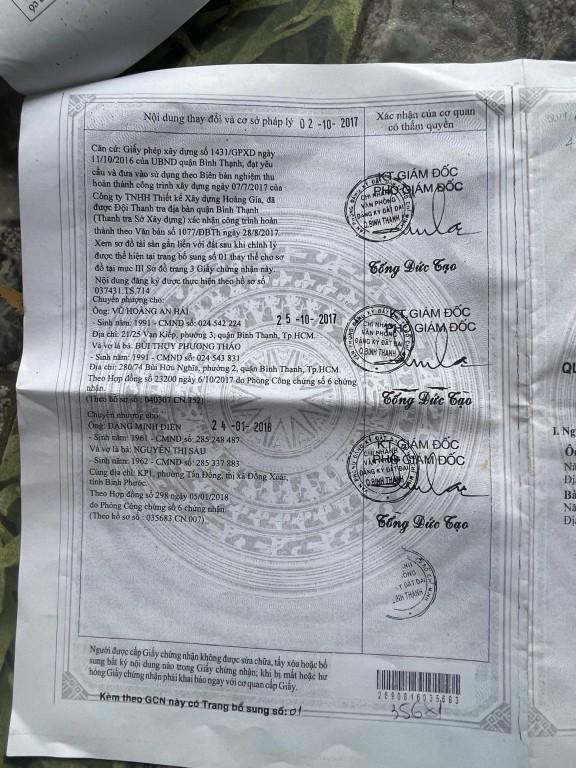 có
Nội dung thay đổi và cơ sở pháp lý 02-10-2017
Xác nhận của cơ quan
có thẩm quyền
Căn cứ: Giấy phép xây dựng số 1431/GPXD ngày
11/10/2016 của UBND quận Bình Thạnh, đạt yêu
cầu và đưa vào sử dụng theo Biên bản nghiệm thu
hoàn thành công trình xây dựng ngày 07/7/2017 của
Công ty TNHH Thiết kế Xây dựng Hoàng Gia, đã
được Đội Thanh tra địa bàn quận Bình Thạnh
(Thanh tra Sở Xây dựng) xác nhận công trình hoàn
thành theo Văn bản số 1077/ĐBTh ngày 28/8/2017.
Xem sơ đồ tài sản gắn liền với đất sau khi chỉnh lý
được thể hiện tại trang bổ sung số 01 thay thế cho sơ
đồ tại mục III Sơ đồ trang 3 Giấy chứng nhận này.
Nội dung đăng ký được thực hiện theo hồ sơ số
037431.TS.714
KT GIÁM ĐỐC
PHÓ GIÁM ĐỐC
CHI NHÁNH
VĂN PHÒNG
ĐĂNG KÝ ĐẤT ĐAI
Q.BÌNH THẠNH
Tống Đức Tạo
Chuyển nhượng cho:
Ông: VŨ HOÀNG AN HẢI
25-10-2017
- Sinh năm: 1991 - CMND số: 024 542 224
Địa chỉ: 21/25 Vạn Kiếp, phường 3, quận Bình Thạnh, Tp.HCM
Và vợ là bà: BÙI THỤY PHƯƠNG THẢO
- Sinh năm: 1991 - CMND số: 024 543 831
Địa chỉ: 280/74 Bùi Hữu Nghĩa, phường 2, quận Bình Thạnh, Tp.HCM
Theo Hợp đồng số 23200 ngày 6/10/2017 do Phòng Công chứng số 6 chứng
nhận.
(Theo hồ sơ số : 040307.CN.752)
KT GIÁM ĐỐC
PHÓ GIÁM ĐỐC
CHI NHÁNH
VĂN PHÒNG
ĐĂNG KÝ ĐẤT ĐAI
Q.BÌNH THẠNH
Tống Đức Tạo
Chuyển nhượng cho:
Ông: ĐẶNG MINH ĐIỀN
24-01-2018
- Sinh năm: 1961 - CMND số: 285 248 487
Và vợ là bà: NGUYỄN THỊ SÁU
- Sinh năm: 1962 - CMND số: 285 337 883
Cùng địa chỉ: KP1, phường Tân Đồng, thị xã Đồng Xoài,
tỉnh Bình Phước.
Theo Hợp đồng số 298 ngày 05/01/2018
do Phòng Công chứng số 6 chứng nhận
(Theo hồ sơ số : 035683.CN.007)
KT GIÁM ĐỐC
PHÓ GIÁM ĐỐC
CHI NHÁNH
VĂN PHÒNG
ĐĂNG KÝ ĐẤT ĐAI
Q.BÌNH THẠNH
Tống Đức Tạo
Người được cấp Giấy chứng nhận không được sửa chữa, tẩy xóa hoặc bổ
sung bất kỳ nội dung nào trong Giấy chứng nhận; khi bị mất hoặc hư
hỏng Giấy chứng nhận phải khai báo ngay với cơ quan cấp Giấy.
Kèm theo GCN này có Trang bổ sung số: 01
QU
I. Ng
Ôn
Nă
Đị
Bà
Nă
Địa